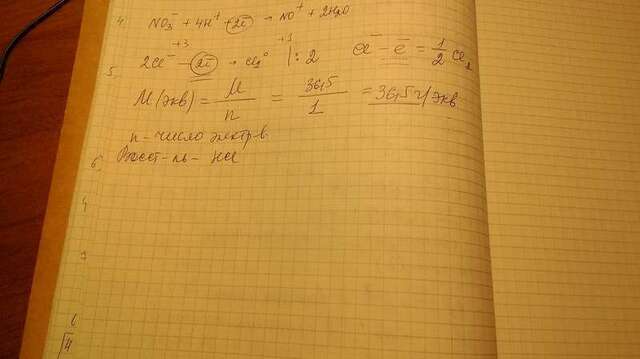 4. NO₃⁻ + 4H⁺ + 2ē → NO⁺ + 2H₂O
+3 +1
5. 2Cl⁻ - 2ē → Cl₂⁰ | : 2 Cl⁻ - ē = 1/2 Cl₂
M(экв) = M/n = 36,5/1 = 36,5 г/экв
n - число электр-в
6. восст-ль - HCl